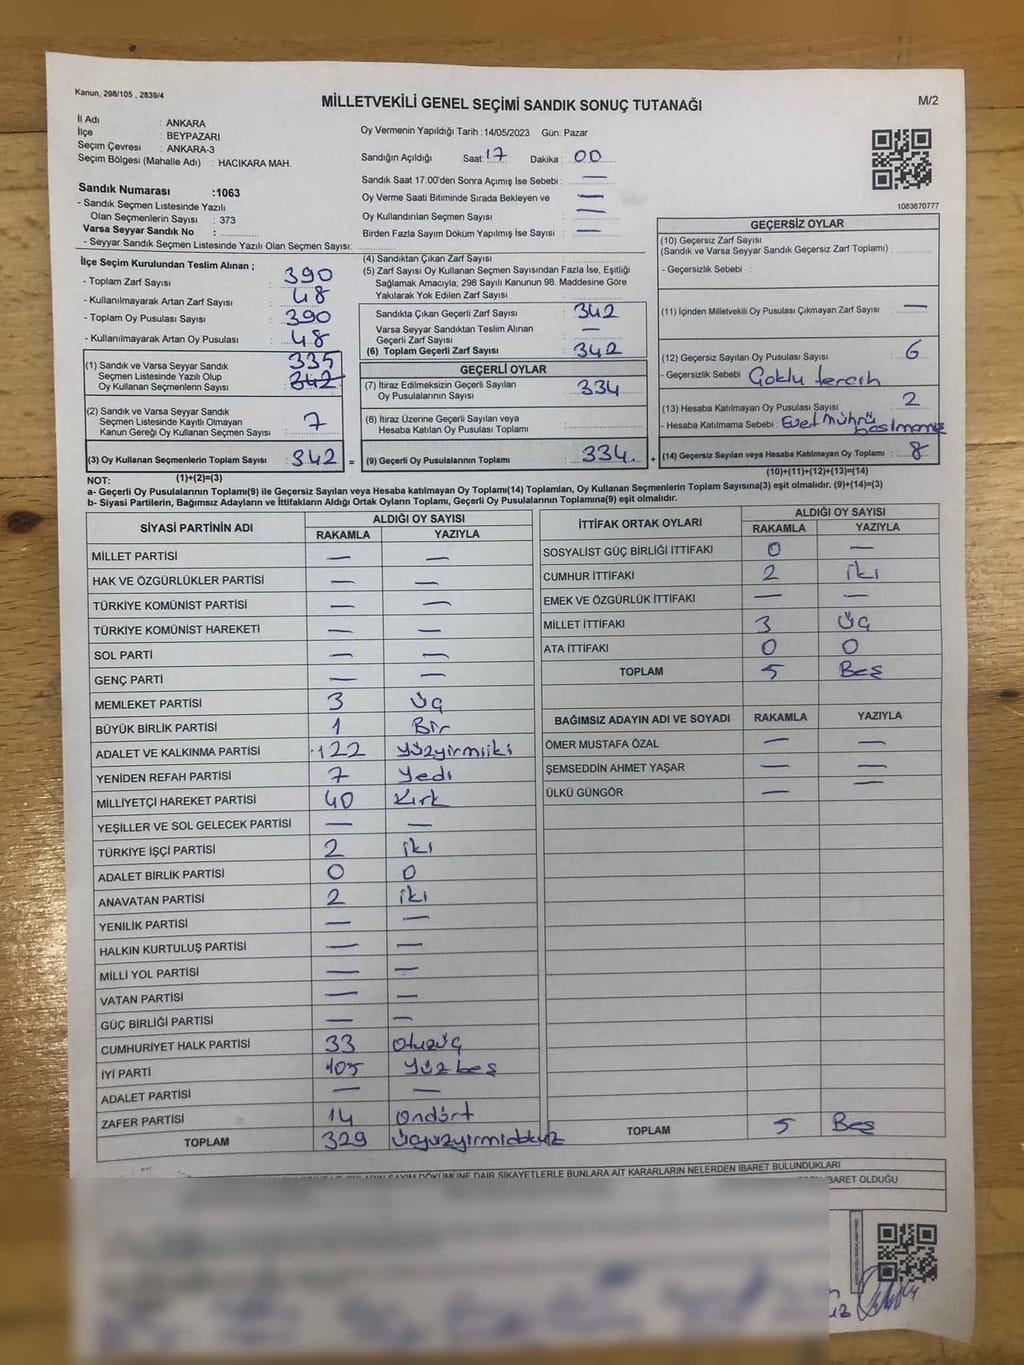 Kanun, 298/105 , 2839/4
MİLLETVEKİLİ GENEL SEÇİMİ SANDIK SONUÇ TUTANAĞI
M/2
İl Adı : ANKARA
İlçe : BEYPAZARI
Seçim Çevresi : ANKARA-3
Seçim Bölgesi (Mahalle Adı) : HACIKARA MAH.
Oy Vermenin Yapıldığı Tarih :14/05/2023 Gün: Pazar
Sandığın Açıldığı Saat: 17 Dakika : 00
Sandık Saat 17:00'den Sonra Açımış İse Sebebi : —
Oy Verme Saati Bitiminde Sırada Bekleyen ve : —
Oy Kullandırılan Seçmen Sayısı —
Birden Fazla Sayım Döküm Yapılmış İse Sayısı : —
1083870777
Sandık Numarası :1063
- Sandık Seçmen Listesinde Yazılı
Olan Seçmenlerin Sayısı : 373
Varsa Seyyar Sandık No :
- Seyyar Sandık Seçmen Listesinde Yazılı Olan Seçmen Sayısı:
İlçe Seçim Kurulundan Teslim Alınan ;
- Toplam Zarf Sayısı : 390
- Kullanılmayarak Artan Zarf Sayısı : 48
- Toplam Oy Pusulası Sayısı : 390
- Kullanılmayarak Artan Oy Pusulası : 48
(1) Sandık ve Varsa Seyyar Sandık 335
Seçmen Listesinde Yazılı Olup
Oy Kullanan Seçmenlerin Sayısı : 342
(2) Sandık ve Varsa Seyyar Sandık
Seçmen Listesinde Kayıtlı Olmayan 7
Kanun Gereği Oy Kullanan Seçmen Sayısı :
(3) Oy Kullanan Seçmenlerin Toplam Sayısı : 342 =
(1)+(2)=(3)
(4) Sandıktan Çıkan Zarf Sayısı :
(5) Zarf Sayısı Oy Kullanan Seçmen Sayısından Fazla İse, Eşitliği
Sağlamak Amacıyla; 298 Sayılı Kanunun 98. Maddesine Göre
Yakılarak Yok Edilen Zarf Sayısı :
Sandıkta Çıkan Geçerli Zarf Sayısı : 342
Varsa Seyyar Sandıktan Teslim Alınan
Geçerli Zarf Sayısı : —
(6) Toplam Geçerli Zarf Sayısı : 342
GEÇERLİ OYLAR
(7) İtiraz Edilmeksizin Geçerli Sayılan
Oy Pusulalarının Sayısı : 334
(8) İtiraz Üzerine Geçerli Sayılan veya
Hesaba Katılan Oy Pusulası Toplamı :
(9) Geçerli Oy Pusulalarının Toplamı : 334. +
GEÇERSİZ OYLAR
(10) Geçersiz Zarf Sayısı
(Sandık ve Varsa Seyyar Sandık Geçersiz Zarf Toplamı) :
- Geçersizlik Sebebi :
(11) İçinden Milletvekili Oy Pusulası Çıkmayan Zarf Sayısı : —
(12) Geçersiz Sayılan Oy Pusulası Sayısı : 6
- Geçersizlik Sebebi Çoklu tercih
(13) Hesaba Katılmayan Oy Pusulası Sayısı : 2
- Hesaba Katılmama Sebebi : Evet Mührü
(14) Geçersiz Sayılan veya Hesaba Katılmayan Oy Toplamı : 8
(10)+(11)+(12)+(13)=(14)
NOT:
a- Geçerli Oy Pusulalarının Toplamı(9) ile Geçersiz Sayılan veya Hesaba katılmayan Oy Toplamı(14) Toplamları, Oy Kullanan Seçmenlerin Toplam Sayısına(3) eşit olmalıdır. (9)+(14)=(3)
b- Siyasi Partilerin, Bağımsız Adayların ve İttifakların Aldığı Ortak Oyların Toplamı, Geçerli Oy Pusulalarının Toplamına(9) eşit olmalıdır.
SİYASİ PARTİNİN ADI ALDIĞI OY SAYISI
RAKAMLA YAZIYLA
MİLLET PARTİSİ — —
HAK VE ÖZGÜRLÜKLER PARTİSİ — —
TÜRKİYE KOMÜNİST PARTİSİ — —
TÜRKİYE KOMÜNİST HAREKETİ — —
SOL PARTİ — —
GENÇ PARTİ — —
MEMLEKET PARTİSİ 3 Üç
BÜYÜK BİRLİK PARTİSİ 1 Bir
ADALET VE KALKINMA PARTİSİ 122 Yüzyirmiiki
YENİDEN REFAH PARTİSİ 7 Yedi
MİLLİYETÇİ HAREKET PARTİSİ 40 Kırk
YEŞİLLER VE SOL GELECEK PARTİSİ — —
TÜRKİYE İŞÇİ PARTİSİ 2 iki
ADALET BİRLİK PARTİSİ 0 0
ANAVATAN PARTİSİ 2 iki
YENİLİK PARTİSİ — —
HALKIN KURTULUŞ PARTİSİ — —
MİLLİ YOL PARTİSİ — —
VATAN PARTİSİ — —
GÜÇ BİRLİĞİ PARTİSİ — —
CUMHURİYET HALK PARTİSİ 33 Otuzüç
İYİ PARTİ 105 Yüz beş
ADALET PARTİSİ — —
ZAFER PARTİSİ 14 Ondört
TOPLAM 329 Üçyüzyirmidokuz
İTTİFAK ORTAK OYLARI ALDIĞI OY SAYISI
RAKAMLA YAZIYLA
SOSYALİST GÜÇ BİRLİĞİ İTTİFAKI 0 —
CUMHUR İTTİFAKI 2 iki
EMEK VE ÖZGÜRLÜK İTTİFAKI — —
MİLLET İTTİFAKI 3 Üç
ATA İTTİFAKI 0 0
TOPLAM 5 Beş
BAĞIMSIZ ADAYIN ADI VE SOYADI RAKAMLA YAZIYLA
ÖMER MUSTAFA ÖZAL — —
ŞEMSEDDİN AHMET YAŞAR — —
ÜLKÜ GÜNGÖR — —
TOPLAM 5 Beş
SAYIM DÖKÜMÜNE DAİR ŞİKAYETLERLE BUNLARA AİT KARARLARIN NELERDEN İBARET BULUNDUKLARI
İBARET OLDUĞU